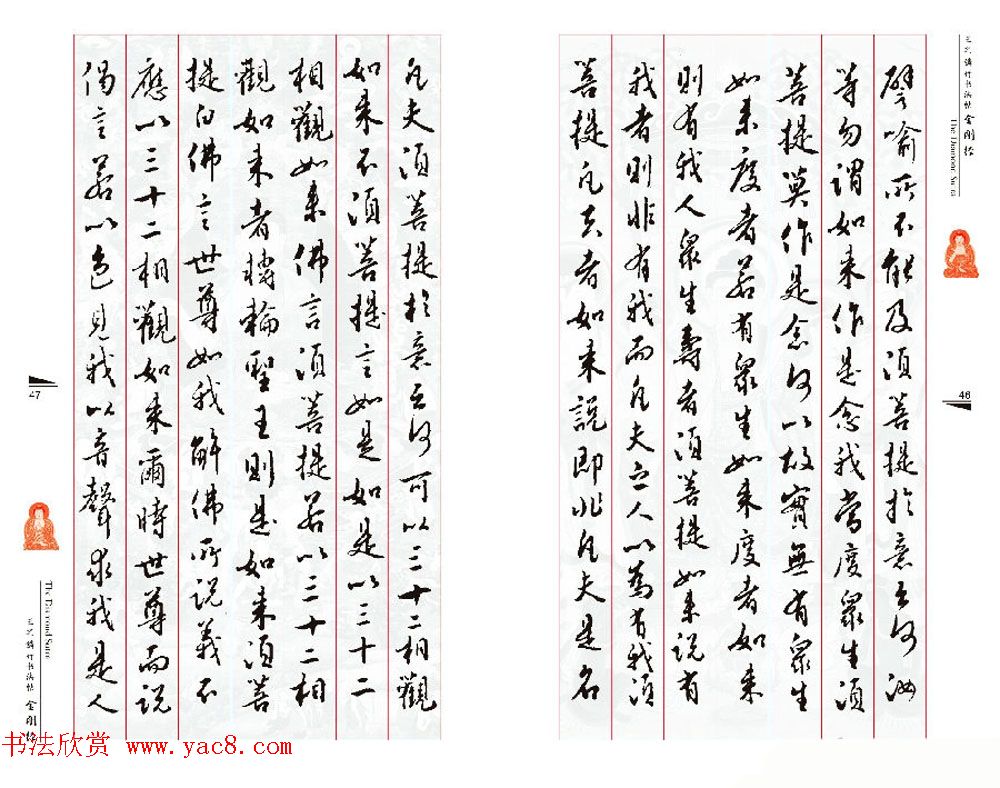 金刚經
The Diamond Sutra
46
譬喻所不能及須菩提於意云何汝
等勿謂如来作是念我當度眾生須
菩提莫作是念何以故實無有眾生
如来度者若有眾生如来度者如来
則有我人眾生壽者須菩提如来說有
我者則非有我而凡夫之人以為有我須
菩提凡夫者如来說即非凡夫是名
凡夫須菩提於意云何可以三十二相觀
如来不須菩提言如是如是以三十二
相觀如来佛言須菩提若以三十二相
觀如来者轉輪聖王則是如来須菩
提白佛言世尊如我解佛所説義不
應以三十二相觀如来爾時世尊而説
偈言若以色見我以音聲求我是人
47
The Diamond Sutra
金刚經
书法欣赏 www.yac8.com